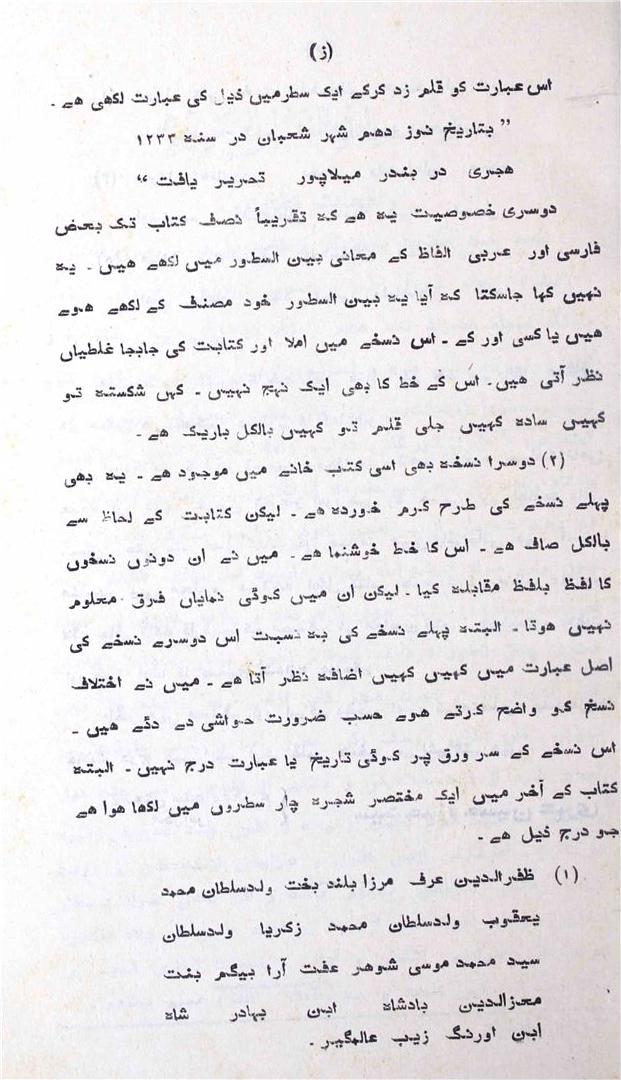 (ز)
اس عبارت کو قلم زد کرکے ایک سطر میں ذیل کی عبارت لکھی ھے ۔
” بتاریخ نوز دھم شہر شعبان در سنہ ۱۲۳۳
ھجری در بندر میلاپور تحریر یافت “
دوسری خصوصیت یہ ھے کہ تقریباً نصف کتاب تک بعض
فارسی اور عربی الفاظ کے معانی بین السطور میں لکھے ھیں ۔ یہ
نہیں کہا جاسکتا کہ آیا یہ بین السطور خود مصنف کے لکھے ھوے
ھیں یا کسی اور کے ۔ اس نسخے میں املا اور کتابت کی جابجا غلطیاں
نظر آتی ھیں ۔ اُس کے خط کا بھی ایک نہج نہیں ۔ کہں شکستہ تو
کہیں سادہ کہیں جلی قلم تو کہیں بالکل باریک ھے ۔
(۲) دوسرا نسخہ بھی اسی کتب خانے میں موجود ھے ۔ یہ بھی
پہلے نسخے کی طرح کرم خوردہ ھے ۔ لیکن کتابت کے لحاظ سے
بالکل صاف ھے ۔ اس کا خط خوشنما ھے ۔ میں نے ان دونوں نسخوں
کا لفظ بلفظ مقابلہ کیا ۔ لیکن ان میں کوئی نمایاں فرق معلوم
نہیں ھوتا ۔ البتہ پہلے نسخے کی بہ نسبت اس دوسرے نسخے کی
اصل عبارت میں کہیں کہیں اضافہ نظر آتا ھے ۔ میں نے اختلاف
نسخ کو واضح کرتے ھوے حسب ضرورت حواشی دے دئے ھیں ۔
اس نسخے کے سر ورق پر کوئی تاریخ یا عبارت درج نہیں ۔ البتہ
کتاب کے آخر میں ایک مختصر شجرہ چار سطروں میں لکھا ھوا ھے
جو درج ذیل ھے ۔
(۱) ظفرالدین عرف مرزا بلند بخت ولدسلطان محمد
یعقوب ولدسلطان محمد زکریا ولدسلطان
سید محمد موسی شوھر عفت آرا بیگم بنت
معزالدین بادشاہ ابن بہادر شاہ
ابن اورنگ زیب عالمگیر ۔